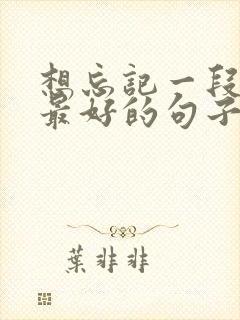 想忘记一段
最好的句子
葉非非